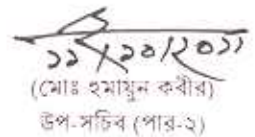 ১১/১০/২০১১
(মোঃ হুমায়ুন কবীর)
উপ-সচিব (পার-২)